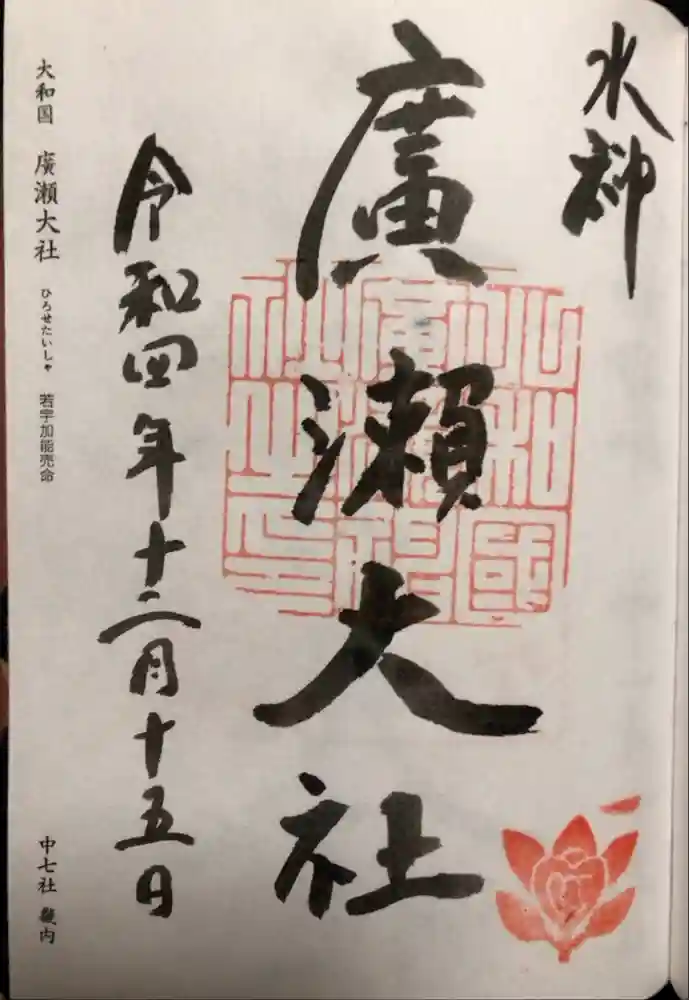 水神
廣瀬大社
令和四年十二月十五日
大和国 廣瀬大社 ひろせたいしゃ 若宇加能売命
中七社 龍内